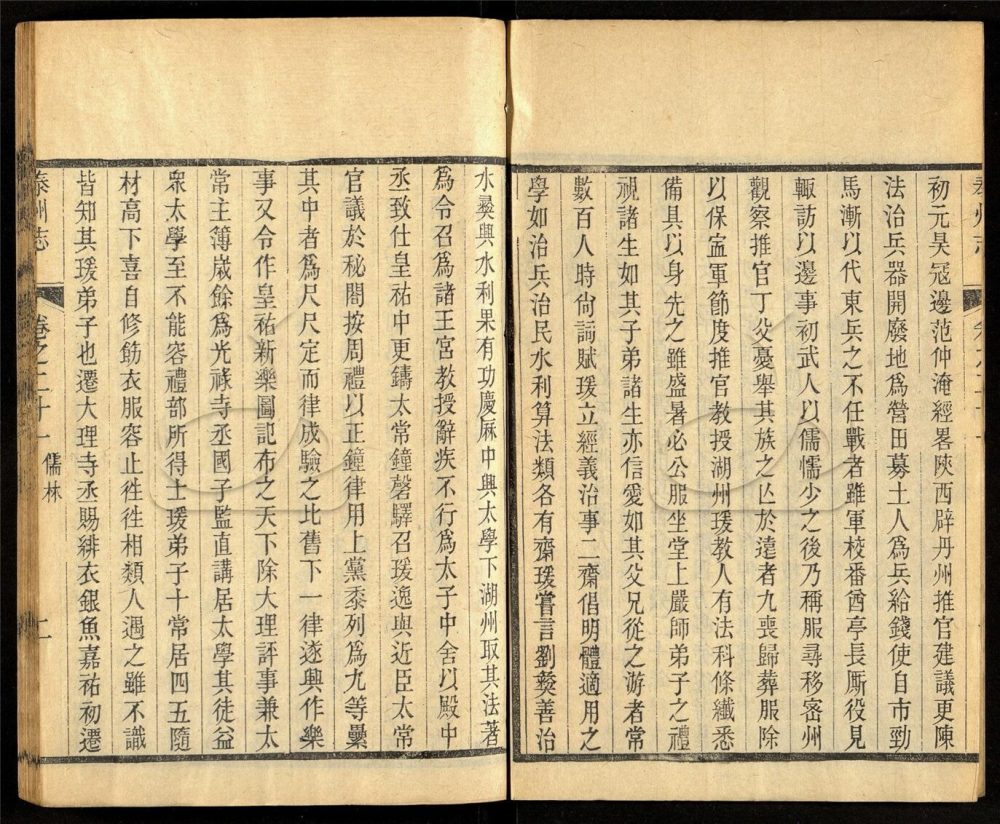 初元昊冦邊范仲淹經畧陝西辟丹州推官建議更陳
法治兵器開廢地爲營田募土人爲兵給錢使自市勁
馬漸以代東兵之不任戰者雖軍校番酋亭長厮役見
輙訪以邊事初武人以儒懦少之後乃稱服尋移密州
觀察推官丁父憂舉其族之亾於遠者九喪歸葬服除
以保寍軍節度推官教授湖州瑗教人有法科條纎悉
備具以身先之雖盛暑必公服坐堂上嚴師弟子之禮
視諸生如其子弟諸生亦信愛如其父兄從之游者常
數百人時尙詞賦瑗立經義治事二齋倡明體適用之
學如治兵治民水利算法類各有齋瑗嘗言劉彝善治
水彝興水利果有功慶厤中興太學下湖州取其法著
爲令召爲諸王宮教授辭疾不行爲太子中舍以殿中
丞致仕皇祐中更鑄太常鐘磬驛召瑗逸與近臣太常
官議於秘閣按周禮以正鐘律用上黨黍列爲九等纍
其中者爲尺尺定而律成驗之比舊下一律遂興作樂
事又令作皇祐新樂圖記布之天下除大理評事兼太
常主簿嵗餘爲光祿寺丞國子監直講居太學其徒益
衆太學至不能容禮部所得士瑗弟子十常居四五隨
材高下喜自修飭衣服容止徃徃相類人遇之雖不識
皆知其瑗弟子也遷大理寺丞賜緋衣銀魚嘉祐初遷
泰州志 卷之二十一 儒林 二